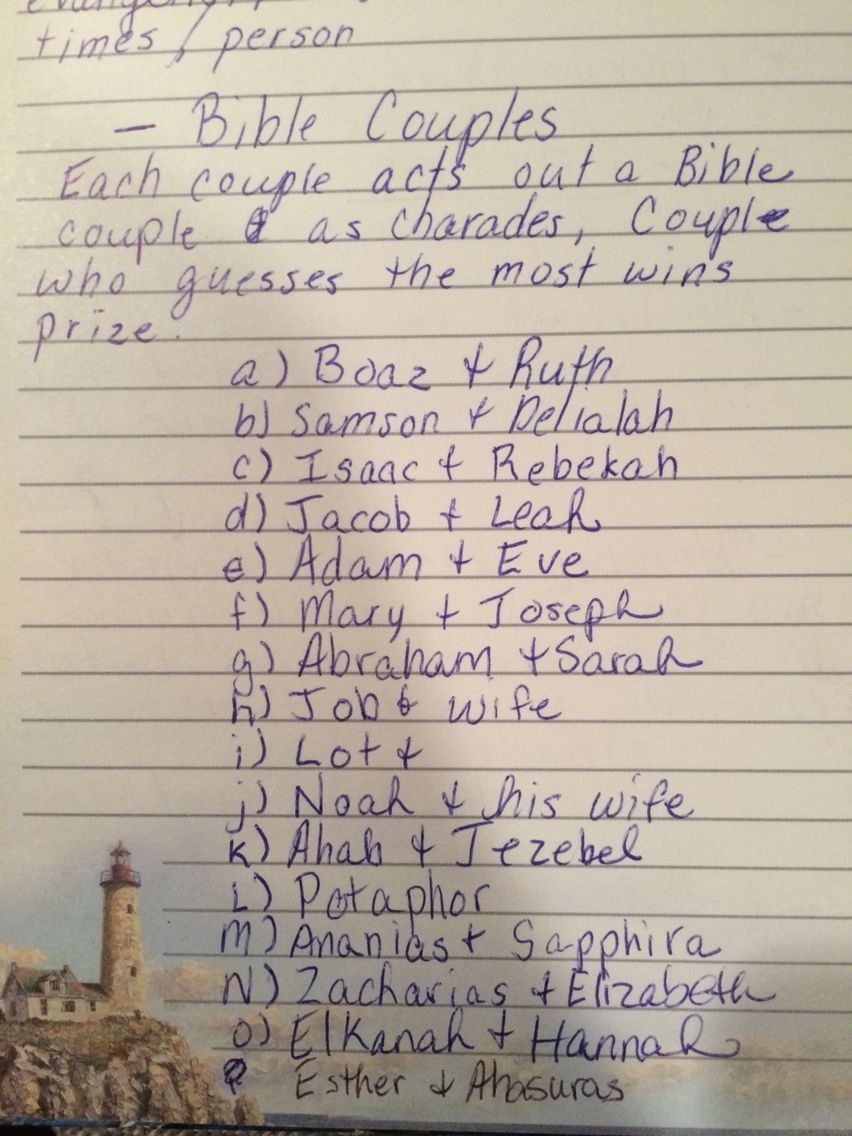 times / person
- Bible Couples
Each couple acts out a Bible
couple as charades, Couple
who guesses the most wins
prize.
a) Boaz & Ruth
b) Samson & Delialah
c) Isaac & Rebekah
d) Jacob & Leah
e) Adam & Eve
f) Mary & Joseph
g) Abraham & Sarah
h) Job & wife
i) Lot &
j) Noah & his wife
K) Ahab & Jezebel
L) Potaphor
M) Ananias & Sapphira
N) Zacharias & Elizabeth
o) Elkanah & Hannah
P Esther & Ahasuras